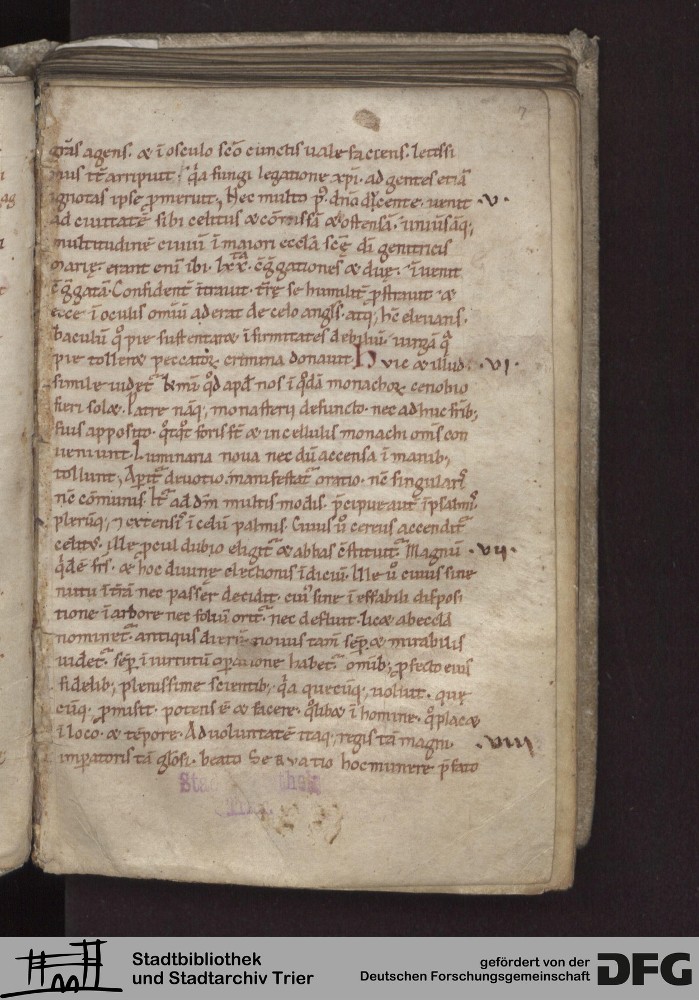 7
gr̄as agens. & ī osculo sc̄o cunctis uale faciens. letissi
mus it̄ arripuit. q̄a fungi legatione xp̄i. ad gentes etiā
ignotas ipse p̄meruit. Nec multo p̄. dn̄o ducente. uenit .V.
ad ciuitatē sibi celitus & cōmissā & ostensā. inuisaq;
multitudinē ciuiū ī maiori eccl̄a sc̄ę dī genitricis
marię. erant enī ibi. lxx. & duę. īuenit
Confident̄ ītrauit. t̄rę se humilit̄ p̄strauit &
ecce ī oculis omiū aderat de celo angl̄s. atq; hc̄ eleuans.
baculū q̊ pie sustentaret īfirmitates debiliū. uirgā q̊
pie tolleret peccator̄. crimina donauit. Huic & illud .VI.
simile uidet̄ q̊d apd̄ nos ī q̊dā monachor̄ cenobio
fieri sol&. Patre nāq; monasterii defuncto. nec adhuc fr̄ib;
suis apposito. q̊tq̊t foris st̄ & in cellulis monachi om̄s con
ueniunt. Luminaria noua nec dū accensa ī manib;
tollunt. Aperit̄ deuotio. manifestat̄ oratio. nc̄ singularis
nc̄ cōmunis. ad dm̄ multis modis. p̄cipue aut̄ ī psalmis.
plerūq; 7 extensis ī celū palmis. Cuius ū cereus accendit̄
celitꝰ. ille p̄cul dubio eligit̄ & abbas c̄stituit̄. Magnū .VII.
q̊dē fr̄s. & hoc diuine electionis īdiciū. Ille ū cuius sine
nutu ī t̄rā nec passer decidit. cuiꝰ sine ī effabili disposi
tione ī arbore nec foliū orit̄. nec defluit. lic& abeccla
nominet̄. antiqus dierū. nouus tam̄ sēp̄ & mirabilis
uidet̄. sēp̄ ī uirtutū op̄atione habet̄. omīb; p̄fecto eius
fidelib; plenissime scientib; q̄a quecūq; uoluit. quę
cūq; p̄misit. potens ē & facere. q̊lib& ī homine. q̊ plac&
ī loco. & tēpore. Ad uoluntatē itaq; regis tā magni. .VIII.
imperatoris tā glo͞si. beato Seruatio hoc munere p̄fato
Stadtbibliothek
Trier
Stadtbibliothek
und Stadtarchiv Trier
gefördert von der
Deutschen Forschungsgemeinschaft
DFG